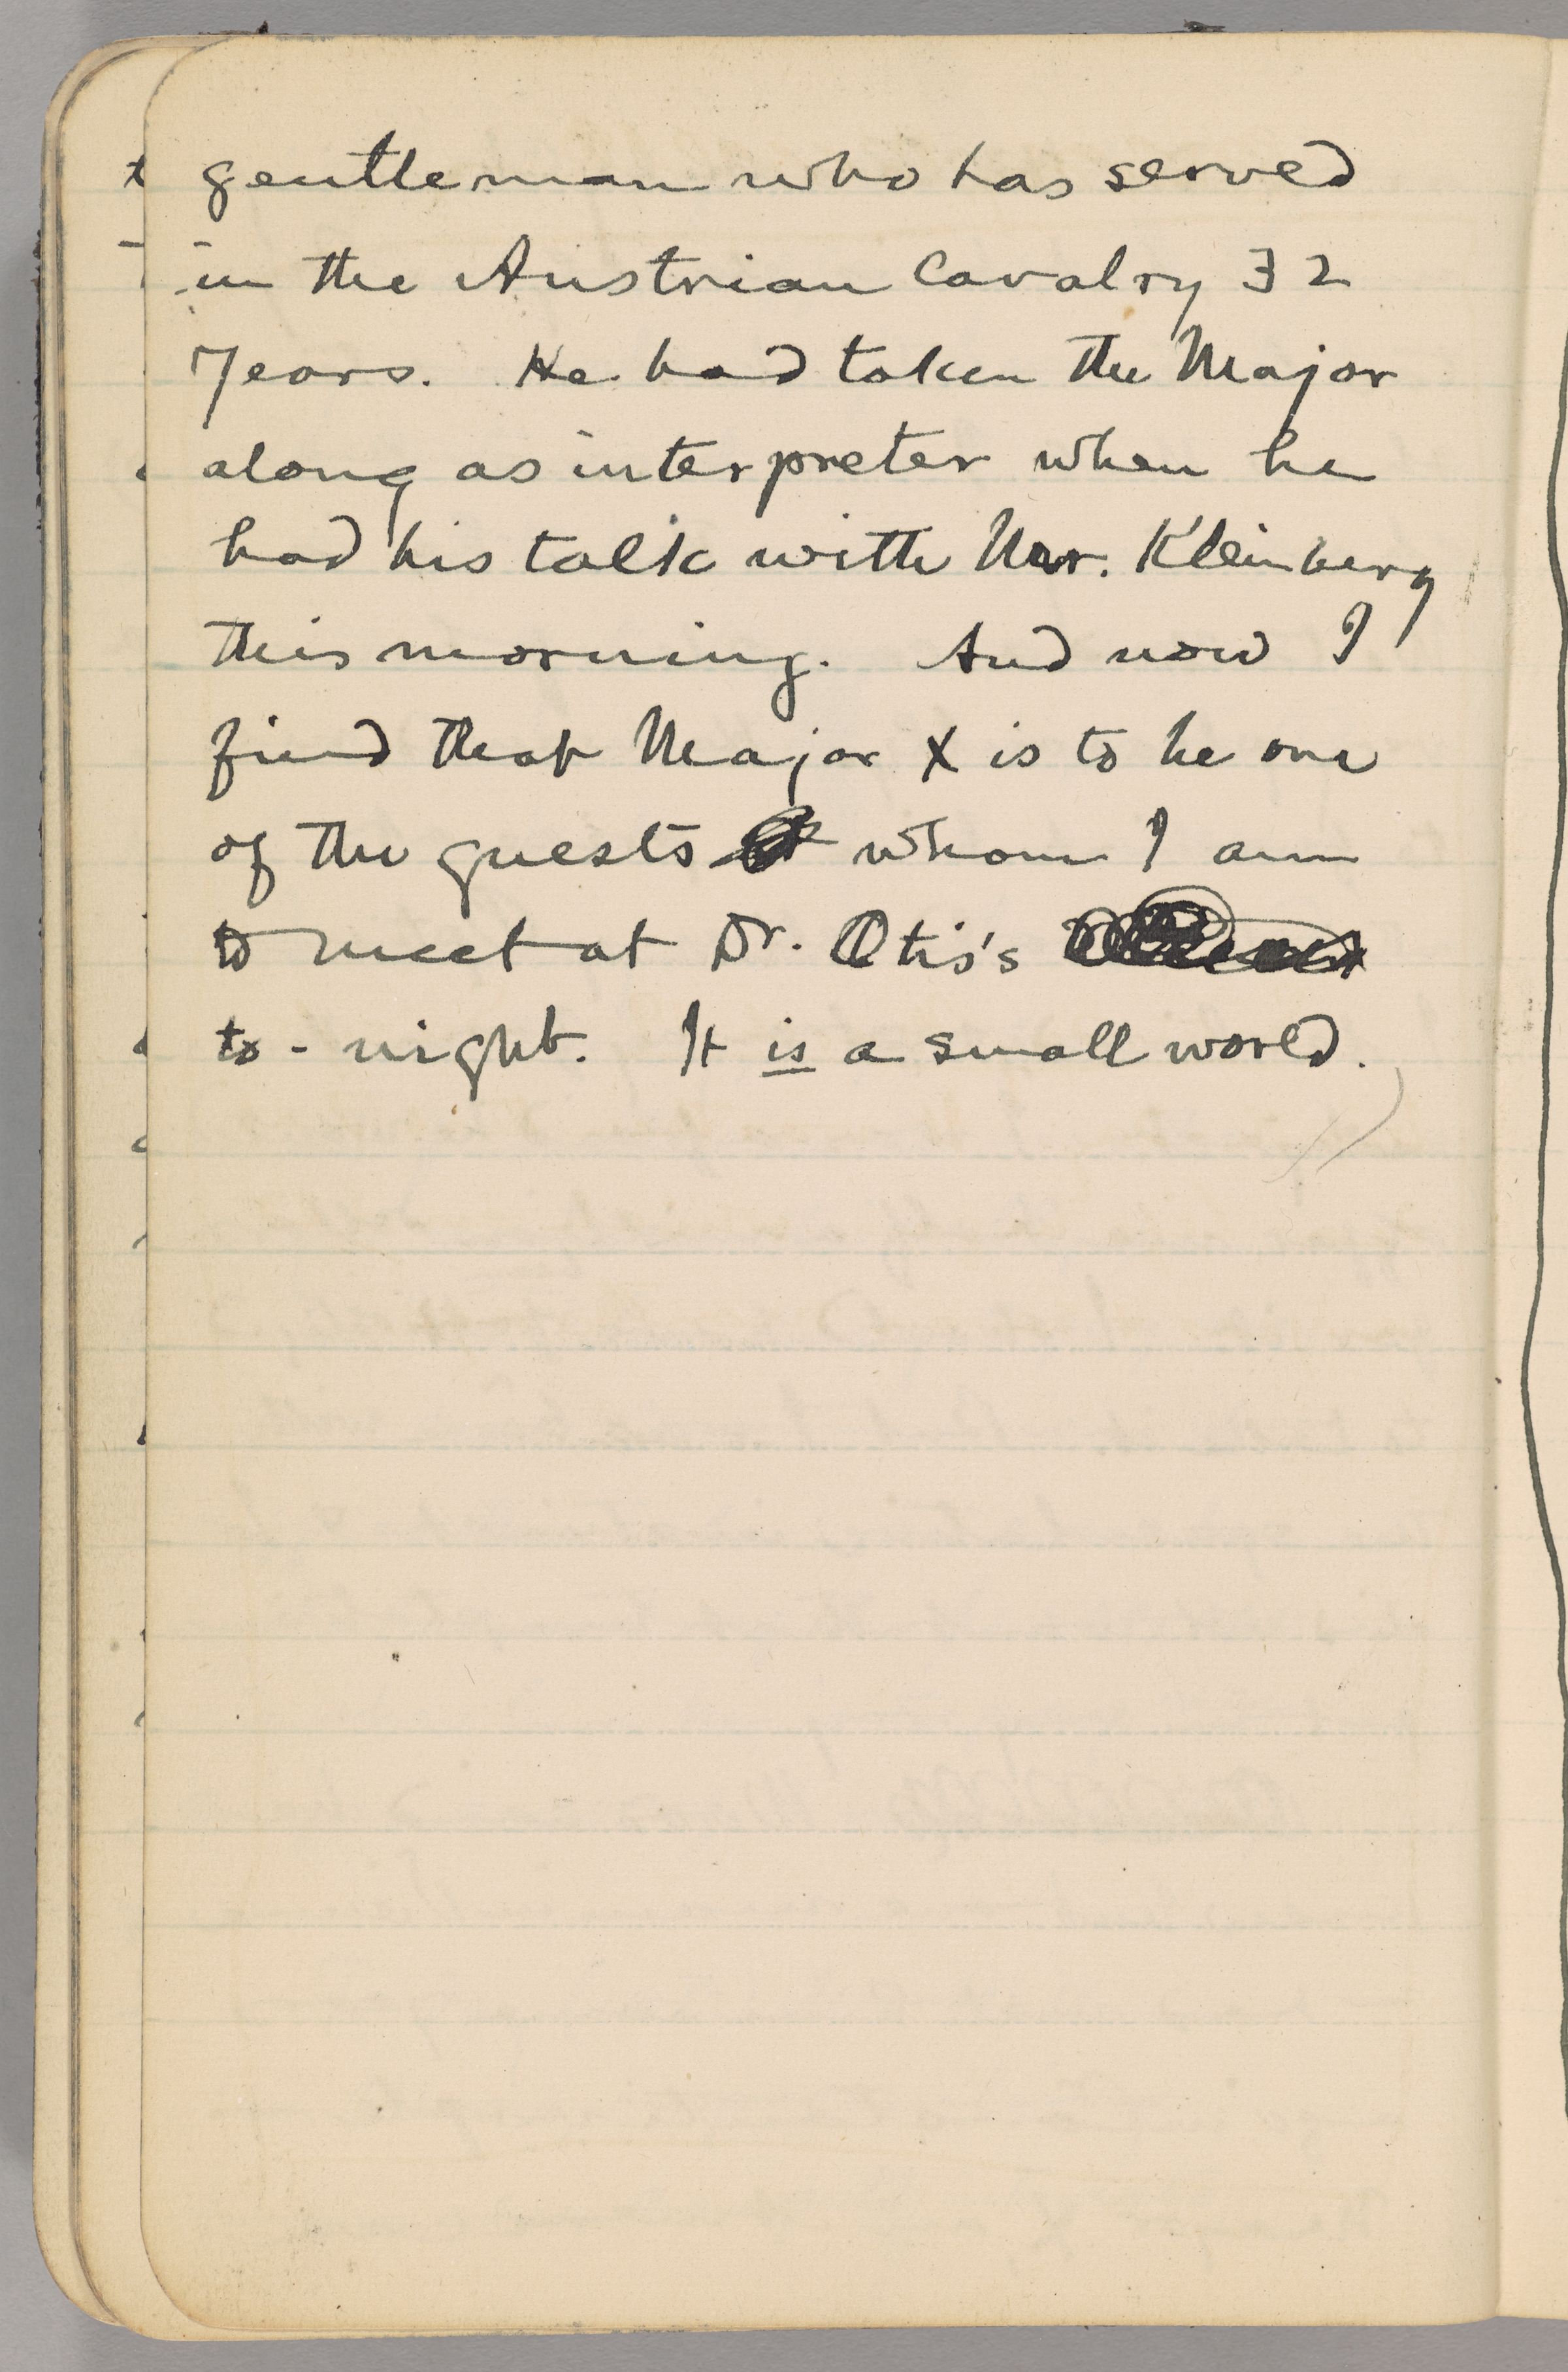 gentleman who has served
in the Austrian Cavalry 32
Years. He had taken the Major
along as interpreter when he
had his talk with Mr. Kleinberg
this morning. And now I
find that Major X is to be one
of the guests whom I am
to meet at Dr. Otis's
to-night. It is a small world.